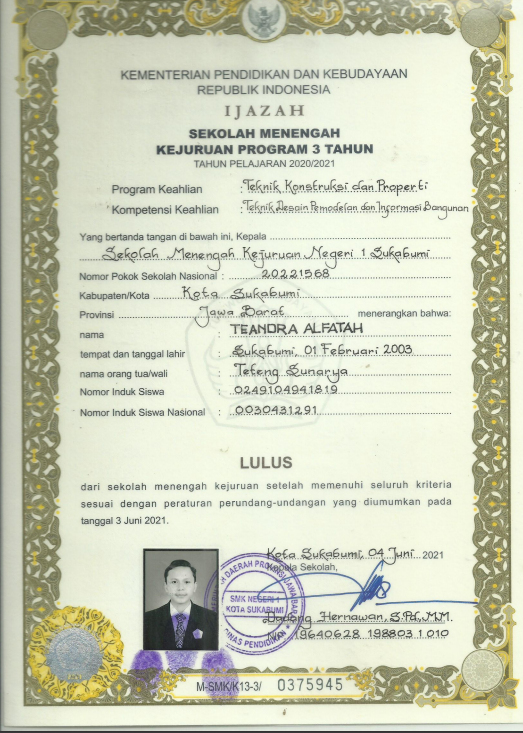 KEMENTERIAN PENDIDIKAN DAN KEBUDAYAAN
REPUBLIK INDONESIA
IJAZAH
SEKOLAH MENENGAH
KEJURUAN PROGRAM 3 TAHUN
TAHUN PELAJARAN 2020/2021
Program Keahlian : Teknik Konstruksi dan Properti
Kompetensi Keahlian : Teknik Desain Pemodelan dan Informasi Bangunan
Yang bertanda tangan di bawah ini, Kepala
Sekolah Menengah Kejuruan Negeri 1 Sukabumi
Nomor Pokok Sekolah Nasional : 20221568
Kabupaten/Kota Kota Sukabumi
Provinsi Jawa Barat menerangkan bahwa:
nama : TEANDRA ALFATAH
tempat dan tanggal lahir : Sukabumi, 01 Februari 2003
nama orang tua/wali : Teteng Sunarya
Nomor Induk Siswa : 0249104941819
Nomor Induk Siswa Nasional : 0030431291
LULUS
dari sekolah menengah kejuruan setelah memenuhi seluruh kriteria
sesuai dengan peraturan perundang-undangan yang diumumkan pada
tanggal 3 Juni 2021.
Kota Sukabumi, 04 Juni 2021
Kepala Sekolah,
DAERAH PROVINSI JAWA BARAT
SMK NEGERI 1
KOTA SUKABUMI
DINAS PENDIDIKAN
Dadang Hernawan, S.Pd, M.M.
19640628 198803 1 010
M-SMK/K13-3/ 0375945